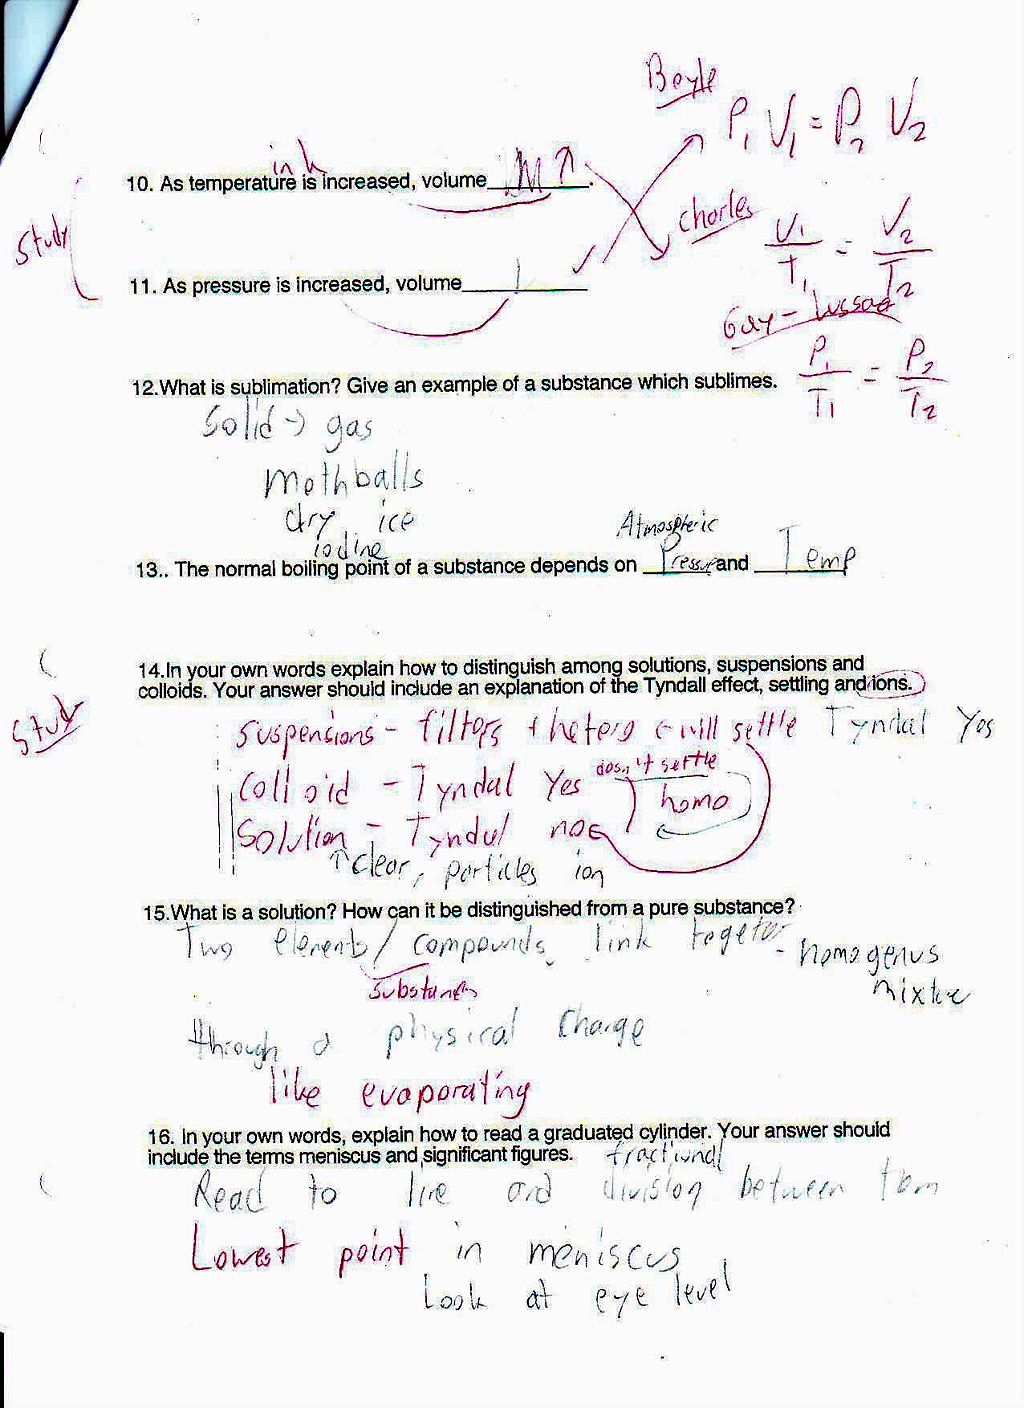 Boyle
P1 V1 = P2 V2
10. As temperature is increased, volume ↑.
Charles
V1/T1 = V2/T2
Study
11. As pressure is increased, volume
Gay-Lussac
P1/T1 = P2/T2
12.What is sublimation? Give an example of a substance which sublimes.
Solid → gas
Mothballs
dry ice
iodine
Atmospheric
13.. The normal boiling point of a substance depends on Pressur and Temp
14.In your own words explain how to distinguish among solutions, suspensions and
colloids. Your answer should include an explanation of the Tyndall effect, settling and ions.
Study
Suspensions - filters + heterg will settle Tyndal Yes
dosn't settle
Colloid - Tyndal Yes homo
Solution - Tyndul no
↑ clear, particles ion
15.What is a solution? How can it be distinguished from a pure substance?
Two elements/compounds link togeter - homogenus
mixture
through a physical change
like evaporating
16. In your own words, explain how to read a graduated cylinder. Your answer should
include the terms meniscus and significant figures.
fractional
Read to line and division between
Lowest point in meniscus
Look at eye level